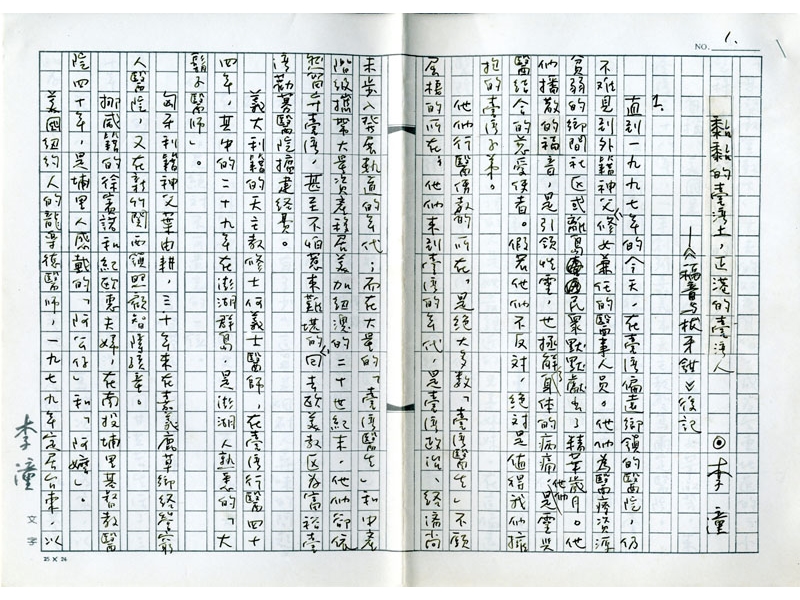 NO. 1.
黏黏的臺灣土,芷港的臺灣人
——《福音與拔牙鉗》後記
⊙李潼
1.
直到一九九七年的今天,在臺灣偏遠鄉鎮的醫院,仍
不難見到外籍神父、修女兼任的醫事人員。他們為醫療資源
貧弱的鄉間社區或離島民眾默默獻出了精華歲月。他
們播散的福音,是引領性靈,也拯解身体的病痛,他們是靈與
醫結合的慈愛使者。假若他們不反對,絕對是值得我們擁
抱的臺灣子弟。
他們行醫傳教的所在,是絕大多數「臺灣醫生」不願
屈棲的所在;他們來到臺灣的年代,是臺灣政治、經濟尚
未步入發展軌道的年代;而在大量的「臺灣醫生」和中產
階級攜帶大量資產移居美加紐澳的二十世紀末,他們卻依
然留守臺灣,甚至不怕惹來難堪的回去歐美教区為富裕臺
灣勸募醫院擴建經費。
義大利籍的天主教修士何義士醫師,在臺灣行醫四十
四年,其中的二十九年在澎湖群島,是澎湖人熟悉的「大
鬍子醫師」。
匈牙利籍神父葉由耕,三十年來在嘉義鹿草鄉經營窮
人醫院,又在新竹関西鎮照顧智障孩童。
挪威籍的徐賓諾和紀歐惠夫婦,在南投埔里基督教醫
院四十年,是埔里人感戴的「阿公仔」和「阿嬤」。
美國紐約人的龍樂德醫師,一九七九年定居台東,以
李潼
文字
25 × 24